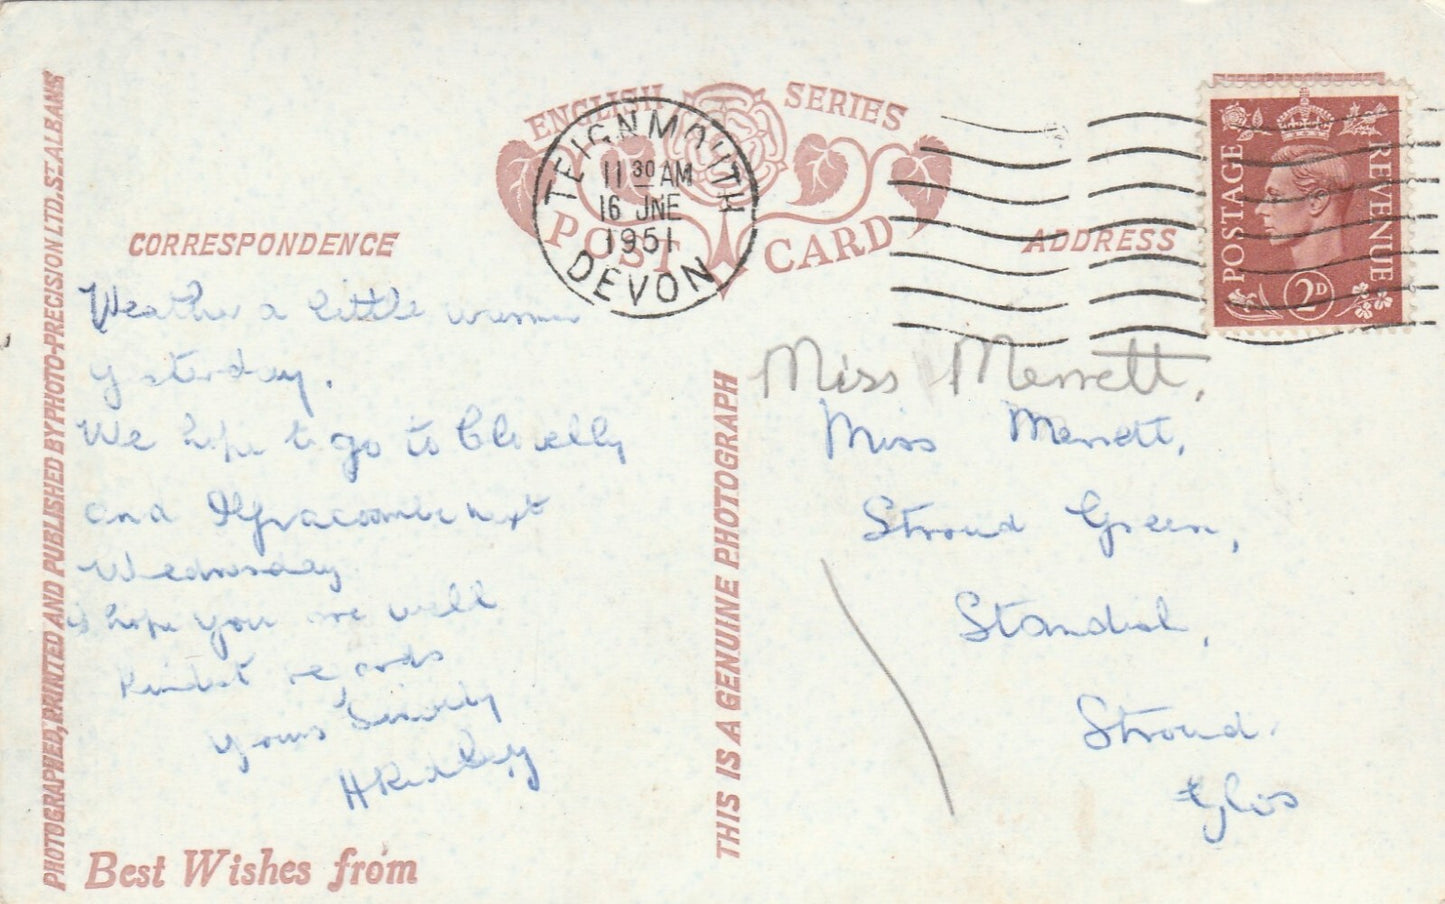 PHOTOGRAPHED, PRINTED AND PUBLISHED BY PHOTO-PRECISION LTD. ST. ALBANS
ENGLISH SERIES
POST CARD
TEIGNMOUTH
11 30 AM
16 JNE
1951
DEVON
POSTAGE
REVENUE
2D
CORRESPONDENCE
Weather a little warmer
yesterday.
We hope to go to Clovelly
and Ilfracombe next
Wednesday
hope you are well
Kindest regards
yours Sincerely
H Ridley
Best Wishes from
THIS IS A GENUINE PHOTOGRAPH
ADDRESS
Miss Merrett,
Miss Merrett,
Stroud Green,
Standish,
Stroud.
Glos